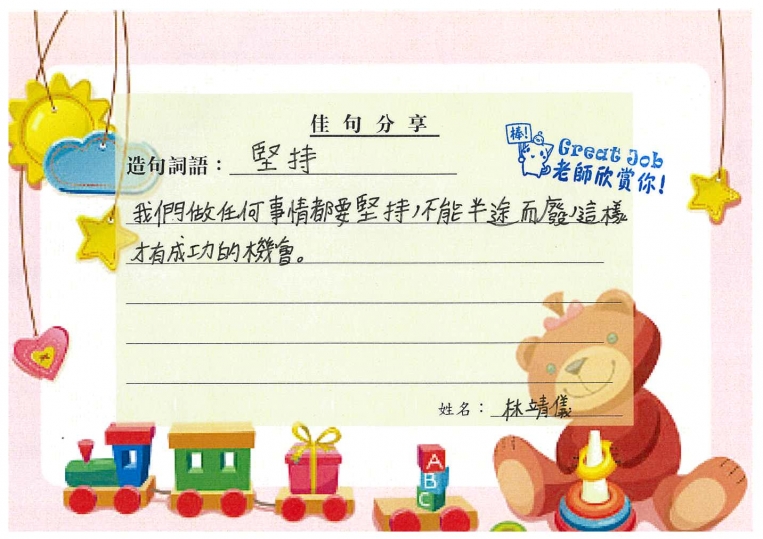 佳句分享
造句詞語：堅持
棒!
Great Job
老師欣賞你!
我們做任何事情都要堅持，不能半途而廢，這樣
才有成功的機會。
姓名：林靖儀
A
B
C